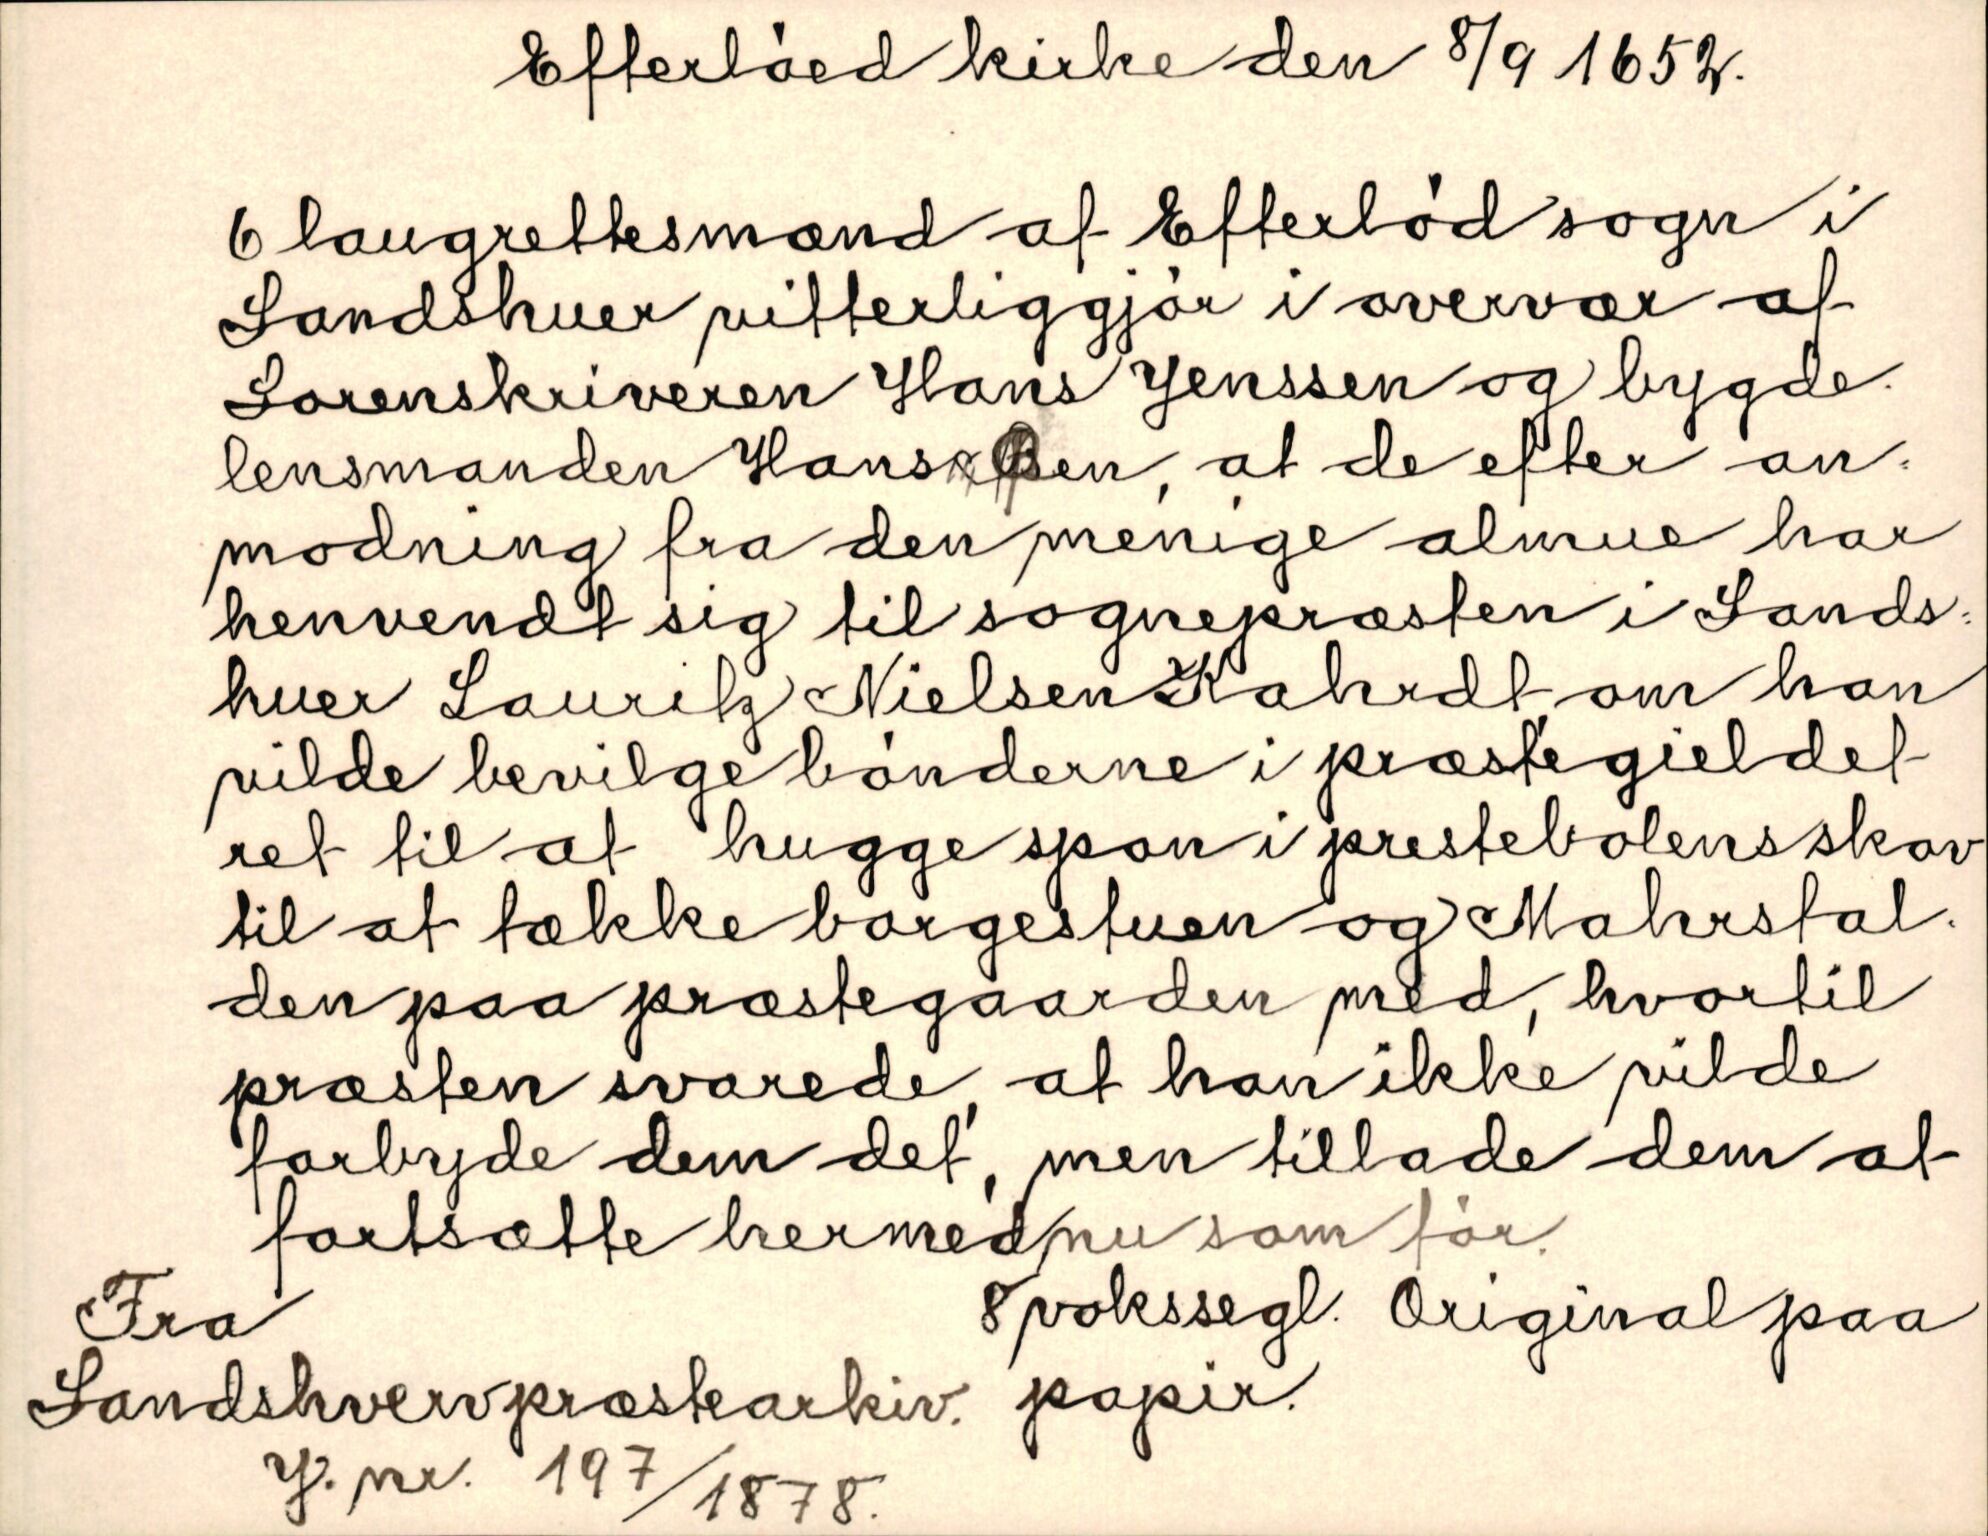 Efterløed kirke den 8/9 1652.
6 laugrettesmænd af Efterlød sogn i
Sandshuer vitterliggjør i overvær af
Sorenskriveren Hans Jenssen og bygde-
lensmanden Hans Olsen, at de efter an-
modning fra den menige almue har
henvendt sig til sognepræsten i Sands-
huer Lauritz Nielsen Kahrdt om han
vilde bevilge bønderne i præstegieldet
ret til at hugge spon i prestebolens skov
til at tække borgestuen og Mahrstal-
den paa præstegaarden med, hvortil
præsten svarede, at han ikke vilde
forbyde dem det, men tillade dem at
fortsætte hermed nu som før.
8 vokssegl. Original paa
papir.
Fra
Sandshverv præstearkiv.
J. nr. 197/1878.